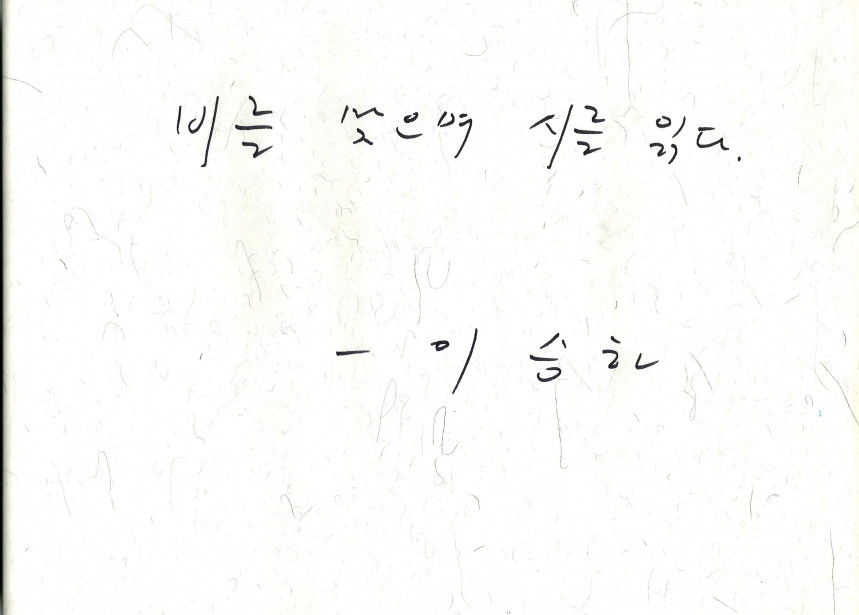 비를 맞으며 시를 읽다.
- 이승하